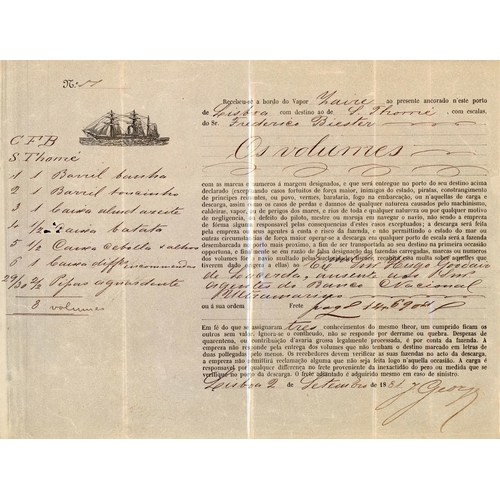 Nº 51
C F B
S. Thomé
1 1 Barril banha
2 1 Barril toucinho
3 1 Caixa
1/2 Caixa batata
Caixa cebolla
Caixa
29/30 2/2 Pipas aguardente
8 volumes
Recebeu-se a bordo do Vapor Zaire ao presente ancorado n'este porto
de Lisboa com destino ao de S. Thomé, com escalas.
do Sr. Frederico Biester
Os volumes
com as marcas e numeros á margem designados, e que será entregue no porto do seu destino acima
declarado (exceptuando casos fortuitos de força maior, inimigos do estado, piratas, constrangimento
de principes reinantes, ou povo, vermes, barataria, fogo na embarcação, ou n'aquellas de carga e
descarga, assim como os casos de perdas e damnos causados pelo machinismo,
caldeiras, vapor, ou de perigos dos mares, e rios de toda e qualquer natureza ou por qualquer motivo
de negligencia, ou defeito do piloto, mestre ou maruja em navegar o navio, não sendo a empreza
de fórma alguma responsavel pelas consequencias d'estas excepções; a descarga será feita
pela empreza ou seus agentes á custa e risco da fazenda, e não permittindo o estado do mar ou
outras circumstancias de força maior operar-se a descarga em qualquer porto de escala será a fazenda
desembarcada no porto mais proximo, a fim de ser transportada ao seu destino na primeira occasião
opportuna, e fundando-se em razão de falsa designação das fazendas carregadas, marcas ou numeros
dos volumes fôr imposta multa pelas auctoridades do porto, recahirá essa multa sobre aquelles que
tiverem dado origem a ella) ao Ill. Snr. Hugo Goodair
de Lacerda, ausente aos Snrs.
agentes do Banco Nacional
Ultramarino
ou á sua ordem Frete 14$690
Em fé do que se assignaram tres conhecimentos do mesmo theor, um cumprido ficam os
outros sem valor. Ignora-se o conteudo, não se responde por derrame ou quebra. Despezas de
quarentena, ou contribuição d'avaria grossa legalmente processada, é por conta da fazenda. A
empreza não responde pela entrega dos volumes que não tenham o destino marcado em letras de
duas pollegadas pelo menos. Os recebedores devem verificar as suas fazendas no acto da descarga,
a empreza não admittirá reclamação alguma que não seja feita logo n'aquella occasião. A carga é
responsavel por qualquer inconveniente proveniente da inexactidão do pezo ou medida que se
verifique no porto da descarga. O frete adiantado é adquirido mesmo em caso de sinistro.
Lisboa 2 de Setembro de 1881